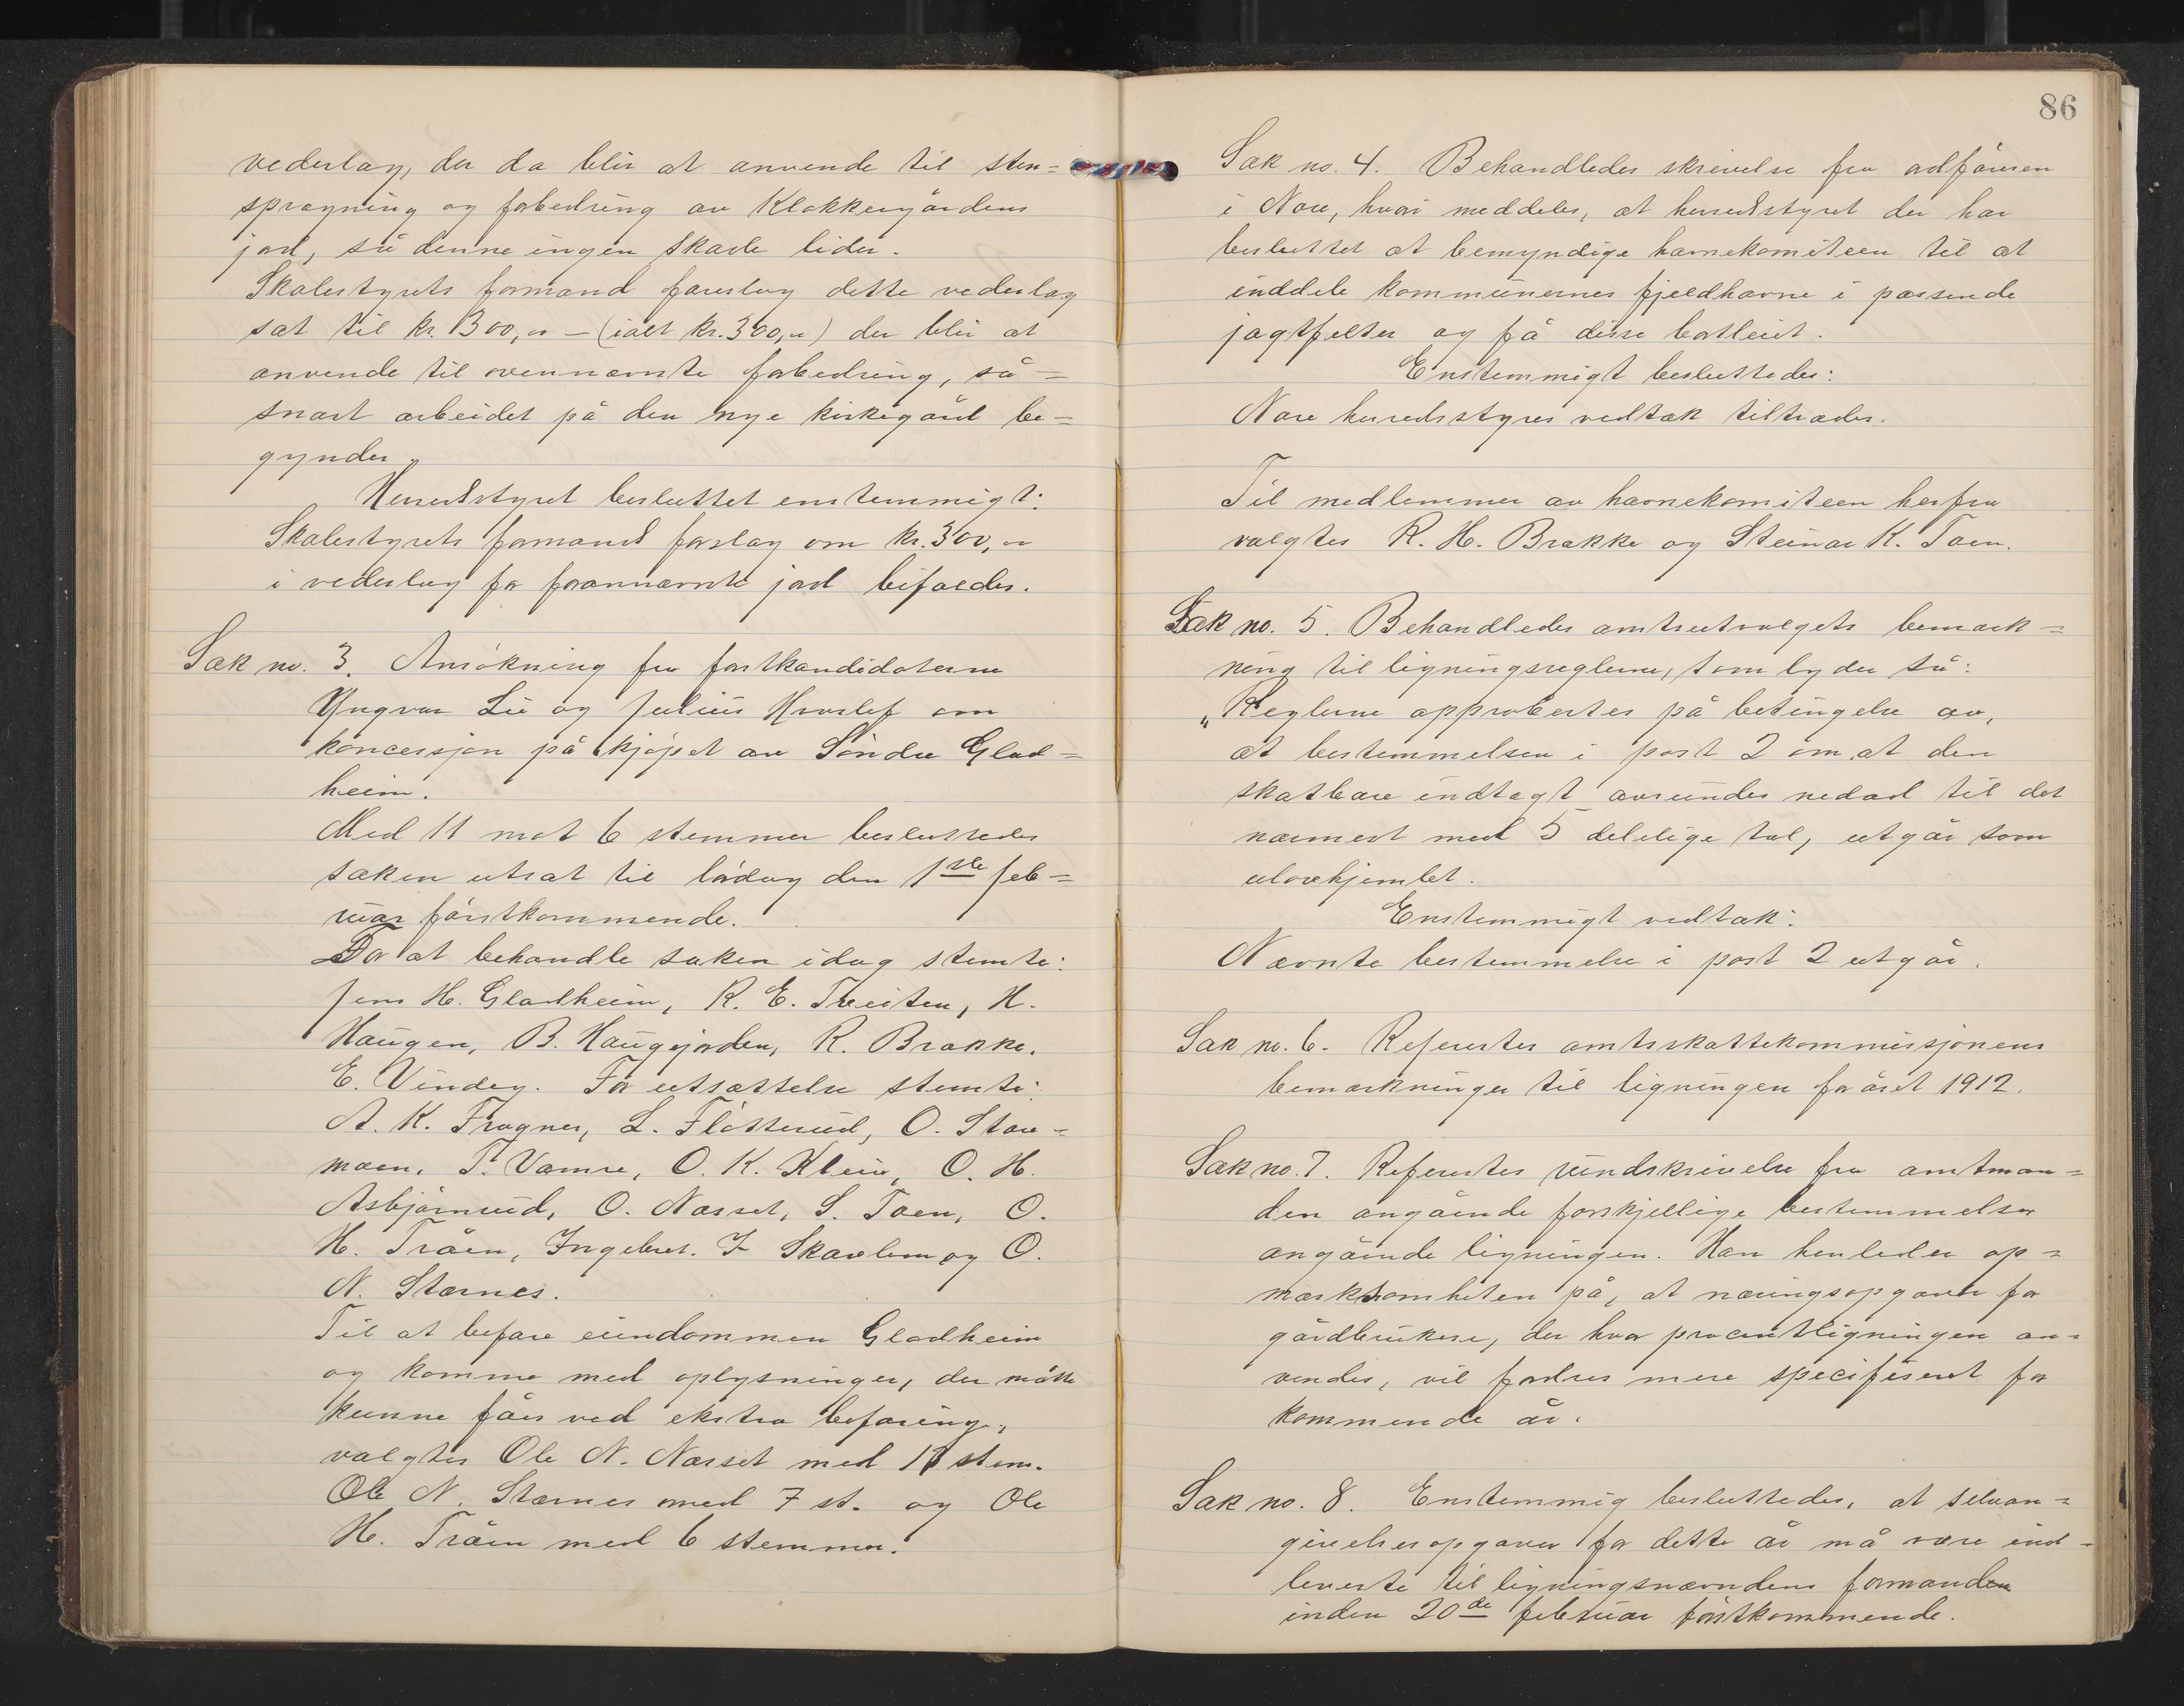 vederlag, der da blir at anvende til sten=
sprægning og forbedring av Klokkergårdens
jord, så denne ingen skade lider.
Skolestyrets formand foreslog dette vederlag
sat til kr. 300,00 – (ialt kr. 300,00) der blir at
anvende til ovennævnte forbedring, så=
snart arbeidet på den nye kirkegård be=
gynder.
Herredsstyret besluttet enstemmigt:
Skolestyrets formands forslag om kr. 300,00
i vederlag for forannævnte jord bifaldes.
Sak no. 3. Ansökning fra forstkandidaterne
Yngvar Lie og Julius Hvoslef om
koncessjon på kjöpet av Söndre Glad=
heim.
Med 11 mot 6 stemmer besluttedes
saken utsat til lördag den 1ste feb=
ruar förstkommende.
For at behandle saken idag stemte:
Jens H. Gladheim, R. E. Treiten, H.
Haugen, B. Haugejorden, R. Brakke,
E. Vindeg. For utsættelse stemte:
A. K. Frogner, L. Flötterud, O. Stor=
moen, T. Vamre, O. K. Kleiv, O. H.
Asbjörnrud, O. Næsset, S. Toen, O.
H. Tråen, Ingebret. I. Skavlem og O.
N. Stærnes.
Til at befare eiendommen Gladheim
og komme med oplysninger, der måtte
kunne fåes ved ekstra befaring,
valgtes Ole N. Næsset med 11 stem.
Ole N. Stærnes med 7 st. og Ole
H. Tråen med 6 stemmer.
86
Sak no. 4. Behandledes skrivelse fra ordföreren
i Nore, hvori meddeles, at herredsstyret der har
besluttet at bemyndige havnekomiteen til at
inddele kommunernes fjeldhavne i passende
jagtfelter og få disse bortleiet.
Enstemmigt besluttedes:
Nore herredsstyres vedtak tiltrædes.
Til medlemmer av havnekomiteen herfra
valgtes R. H. Brakke og Steinar K. Toen.
Sak no. 5. Behandledes amtsutvalgets bemærk=
ning til ligningsreglerne, som lyder så:
„Reglerne approbertes på betingelse av,
at bestemmelsen i post 2 om at den
skatbare indtægt avrundes nedad til det
nærmest med 5 delelige tal, utgår som
ulovhjemlet.
Enstemmigt vedtak:
Nævnte bestemmelse i post 2 utgår.
Sak no. 6. Refertes amtsskattekommissjonens
bemærkninger til ligningen for året 1912.
Sak no. 7. Refertes rundskrivelse fra amtman=
den angående forskjellige bestemmelser
angående ligningen. Han henleder op=
mærksomheten på, at næringsopgaver for
gårdbrukere, der hvor procentligningen an=
vendes, vil fordres mere specifiseret for
kommende år.
Sak no. 8. Enstemmig besluttedes, at selvan=
givelsesopgaver for dette år må være ind=
leverte til ligningsnævndens formanden
inden 20de februar förstkommende.